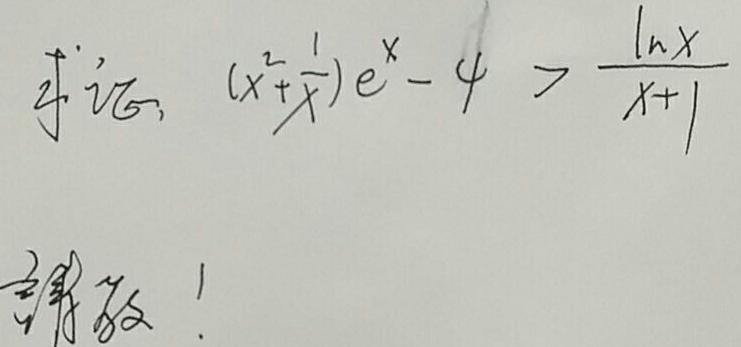 求证, (x²+1/x)eˣ-4 > ln x/(x+1)
請教!